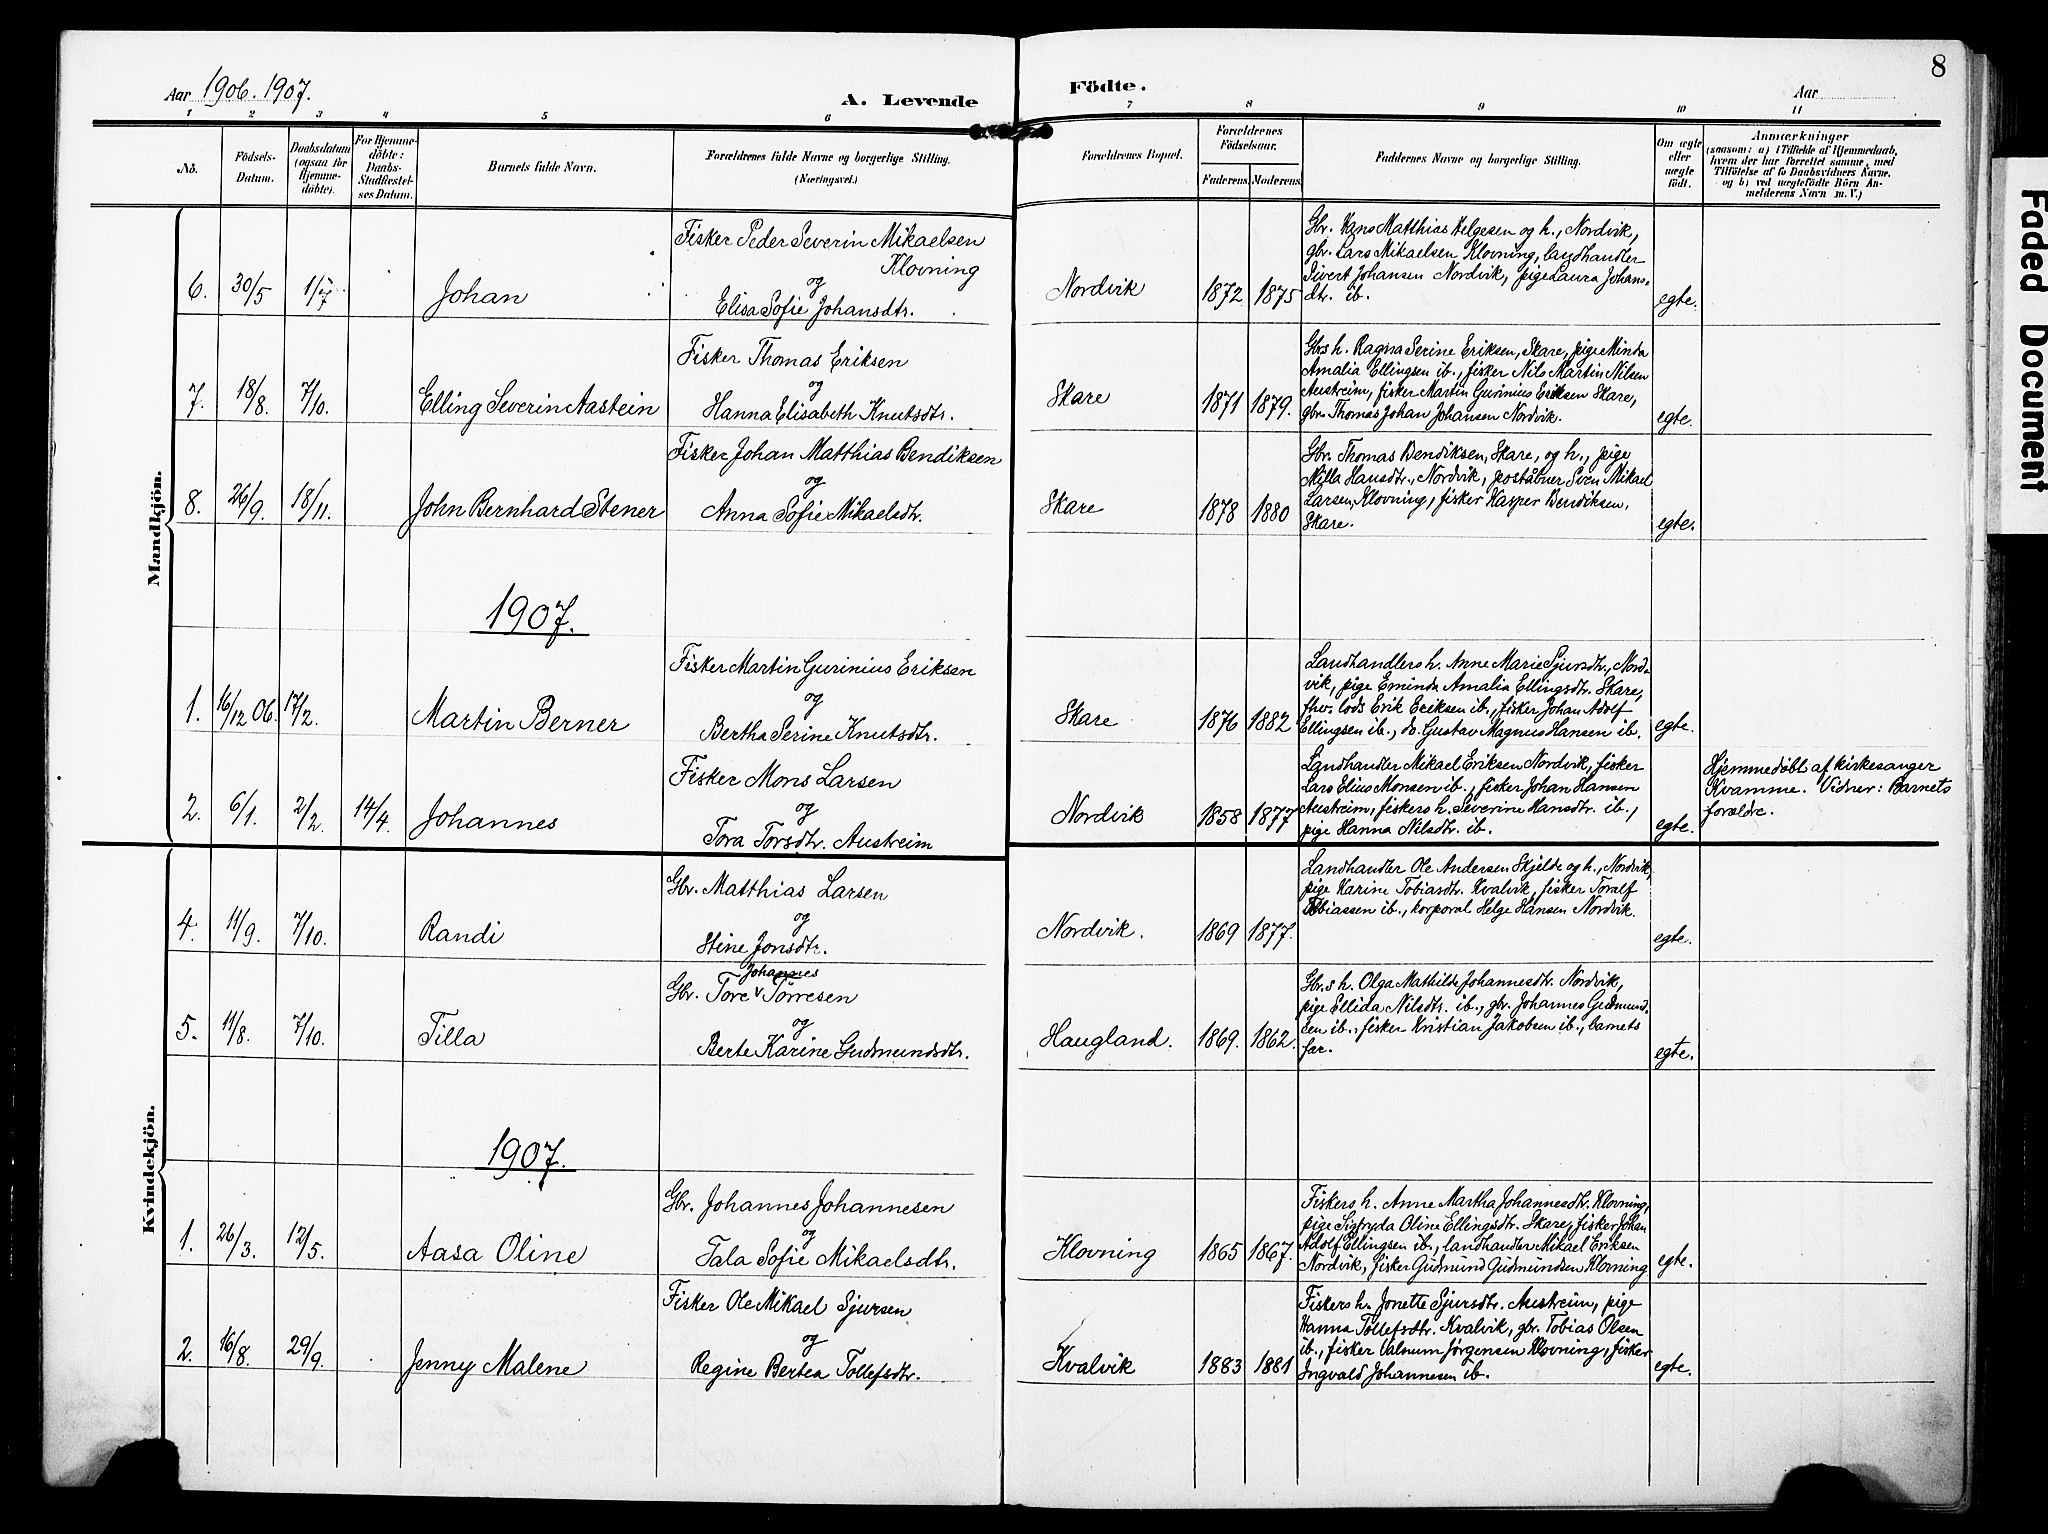 8
Aar 1906. 1907.
A. Levende
Födte.
Aar
1 2 3 4 5 6 7 8 9 10 11
No.
Födsels-
Datum.
Daabsdatum
(ogsaa for
Hjemme-
döbte).
For Hjemme-
döbte:
Daabs-
Stadfæstel-
ses Datum.
Barnets fulde Navn.
Forældrenes fulde Navne og borgerlige Stilling.
(Næringsvei.)
Forældrenes Bopæl.
Forældrenes
Födselsaar.
Faderens. Moderens.
Faddernes Navne og borgerlige Stilling.
Om ægte
eller
uægte
födt.
Anmærkninger
(saasom: a) i Tilfælde af Hjemmedaab,
hvem der har forrettet samme, med
Tilföielse af to Daabsvidners Navne,
og b) ved uægtefödte Börn An-
melderens Navn m. V.)
Mandkjön.
6. 30/5 1/7 Johan
Fisker Peder Severin Mikaelsen
Klovning
og
Elisa Sofie Johansdtr.
Nordvik 1872 1875
Gbr. Hans Matthias Helgesen og h., Nordvik,
gbr. Lars Mikaelsen Klovning, landhandler
Sivert Johansen Nordvik, pige Laura Johans-
dtr. ib.
egte.
7. 18/8. 7/10. Elling Severin Aastein
Fisker Thomas Eriksen
og
Hanna Elisabeth Knutsdtr.
Skare 1871 1879.
Gbrs h. Ragna Serine Eriksen, Skare, pige Minda
Amalia Ellingsen ib., fisker Nils Martin Nilsen
Austreim, fisker Martin Gurinius Eriksen Skare,
gbr. Thomas Johan Johansen Nordvik.
egte.
8. 26/9. 18/11. John Bernhard Stener
Fisker Johan Matthias Bendiksen
og
Anna Sofie Mikaelsdtr.
Skare 1878 1880
Gbr. Thomas Bendiksen, Skare, og h., pige
Milla Hansdtr., Nordvik, poståbner Sven Mikael
Larsen, Klovning, fisker Kasper Bendiksen,
Skare.
egte.
1907.
1. 16/12 06. 17/2. Martin Berner
Fisker Martin Gurinius Eriksen
og
Bertha Serine Knutsdtr.
Skare 1876 1882
Landhandlers h. Anne Marie Sjursdtr., Nord-
vik, pige Eminda Amalia Ellingsdtr. Skare,
fhv. lods Erik Eriksen ib., fisker Johan Adolf
Ellingsen ib., do. Gustav Magnus Hansen ib.
egte.
2. 6/1. 2/2. 14/4. Johannes
Fisker Mons Larsen
og
Tora Torsdtr. Austreim
Nordvik 1858 1877
Landhandler Mikael Eriksen Nordvik, fisker
Lars Elius Monsen ib., fisker Johan Hansen
Austreim, fiskers h. Severine Hansdtr. ib.,
pige Hanna Nilsdtr. ib.
egte.
Hjemmedöbt af kirkesanger
Kvamme. Vidner: Barnets
forældre.
Kvindekjön.
4. 11/9. 7/10. Randi
Gbr. Matthias Larsen
og
Stine Jonsdtr.
Nordvik. 1869 1877.
Landhandler Ole Andersen Skjelde og h., Nordvik,
pige Karine Tobiasdtr. Kvalvik, fisker Toralf
Tobiassen ib., korporal Helge Hansen Nordvik.
egte.
5. 11/8. 7/10. Tilla
Johannes
Gbr. Tore v Törresen
og
Berte Karine Gudmundsdtr.
Haugland. 1869. 1862.
Gbr.s h. Olga Mathilde Johannesdtr. Nordvik,
pige Ellida Nilsdtr. ib., gbr. Johannes Gudmund-
sen ib., fisker Kristian Jakobsen ib., barnets
far.
egte.
1907.
1. 26/3. 12/5. Aasa Oline
Gbr. Johannes Johannesen
og
Tala Sofie Mikaelsdtr.
Klovning 1865 1867.
Fiskers h. Anne Martha Johannesdtr. Klovning,
pige Sigfryda Oline Ellingsdtr. Skare, fisker Johan
Adolf Ellingsen ib., landhandler Mikael Eriksen
Nordvik, fisker Gudmund Gudmundsen Klovning
egte.
2. 16/8. 29/9. Jenny Malene
Fisker Ole Mikael Sjursen
og
Regine Bertea Tollefsdtr.
Kvalvik 1883 1881
Fiskers h. Jonette Sjursdtr. Austreim, pige
Hanna Tollefsdtr. Kvalvik, gbr. Tobias Olsen
ib., fisker Valnum Jørgensen Klovning, fisker
Ingvald Johannesen ib.
egte.
Faded Document